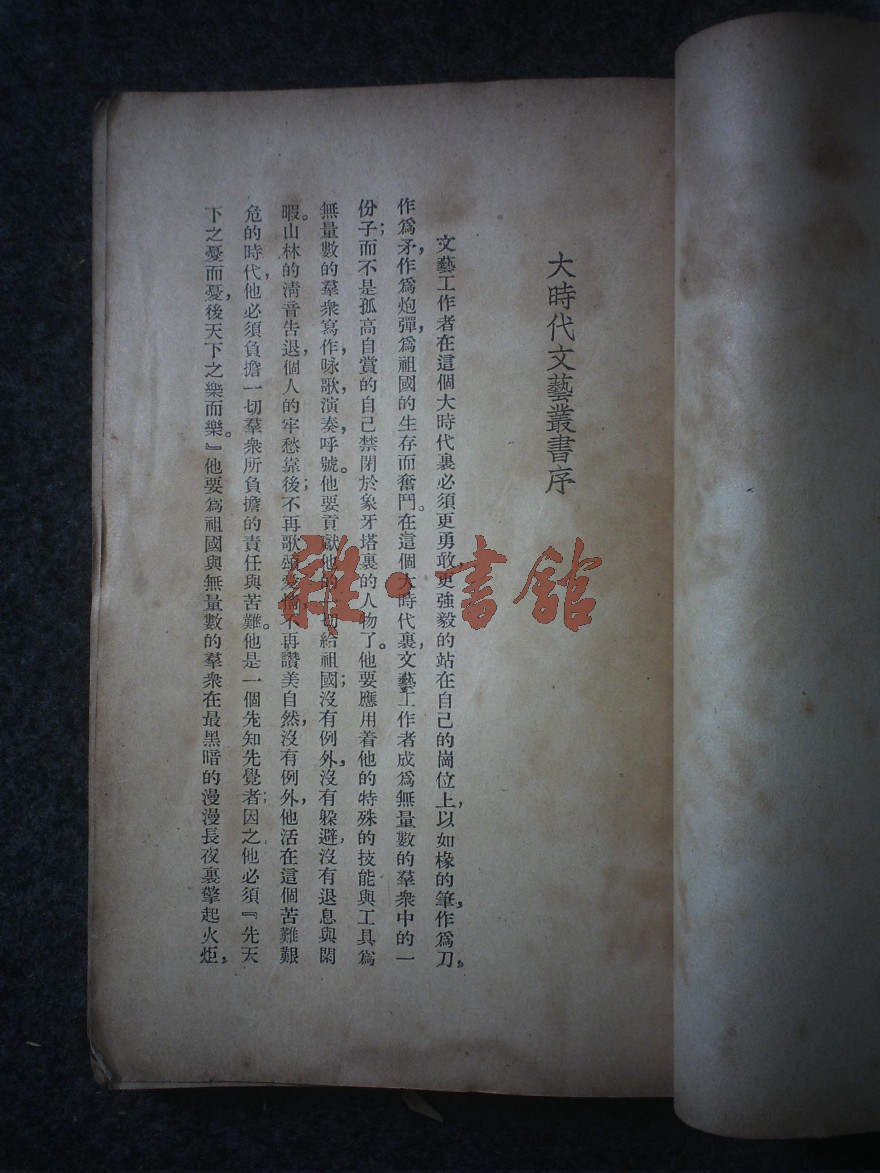 大時代文藝叢書序
文藝工作者在這個大時代裏必須更勇敢更強毅的站在自己的崗位上，以如椽的筆，作爲刀，
作爲矛，作爲炮彈，爲祖國的生存而奮鬥。在這個大時代裏，文藝工作者成爲無量數的羣衆中的一
份子；而不是孤高自賞的自己禁閉於象牙塔裏的人物了。他要應用着他的特殊的技能與工具爲
無量數的羣衆寫作，咏歌，演奏，呼號。他要貢獻他的一切給祖國；沒有例外，沒有躲避，沒有退息與閑
暇。山林的淸音告退，個人的牢愁靠後；不再歌頌愛情，不再讚美自然，沒有例外，他活在這個苦難艱
危的時代，他必須負擔一切羣衆所負擔的責任與苦難。他是一個先知先覺者；因之他必須『先天
下之憂而憂，後天下之樂而樂。』他要爲祖國與無量數的羣衆在最黑暗的漫漫長夜裏擎起火炬，
雜·書館